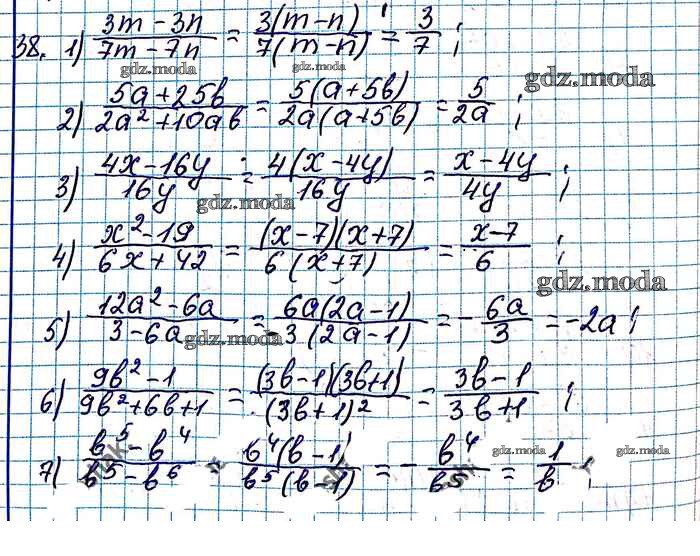 38. 1) (3m - 3n)/(7m - 7n) = 3(m - n)/7(m - n) = 3/7 ;
gdz.moda gdz.moda gdz.moda
2) (5a + 25b)/(2a² + 10ab) = 5(a + 5b)/2a(a + 5b) = 5/2a ;
3) (4x - 16y)/16y = 4(x - 4y)/16y = (x - 4y)/4y ;
gdz.moda
4) (x² - 19)/(6x + 42) = (x - 7)(x + 7)/6(x + 7) = (x - 7)/6 ;
gdz.moda
5) (12a² - 6a)/(3 - 6a) = 6a(2a - 1)/-3(2a - 1) = - 6a/3 = -2a ;
gdz.moda
6) (9b² - 1)/(9b² + 6b + 1) = (3b - 1)(3b + 1)/(3b + 1)² = (3b - 1)/(3b + 1) ;
7) (b⁵ - b⁴)/(b⁵ - b⁶) = b⁴(b - 1)/b⁵(b - 1) = - b⁴/b⁵ = 1/b ;
gdz.moda gdz.moda